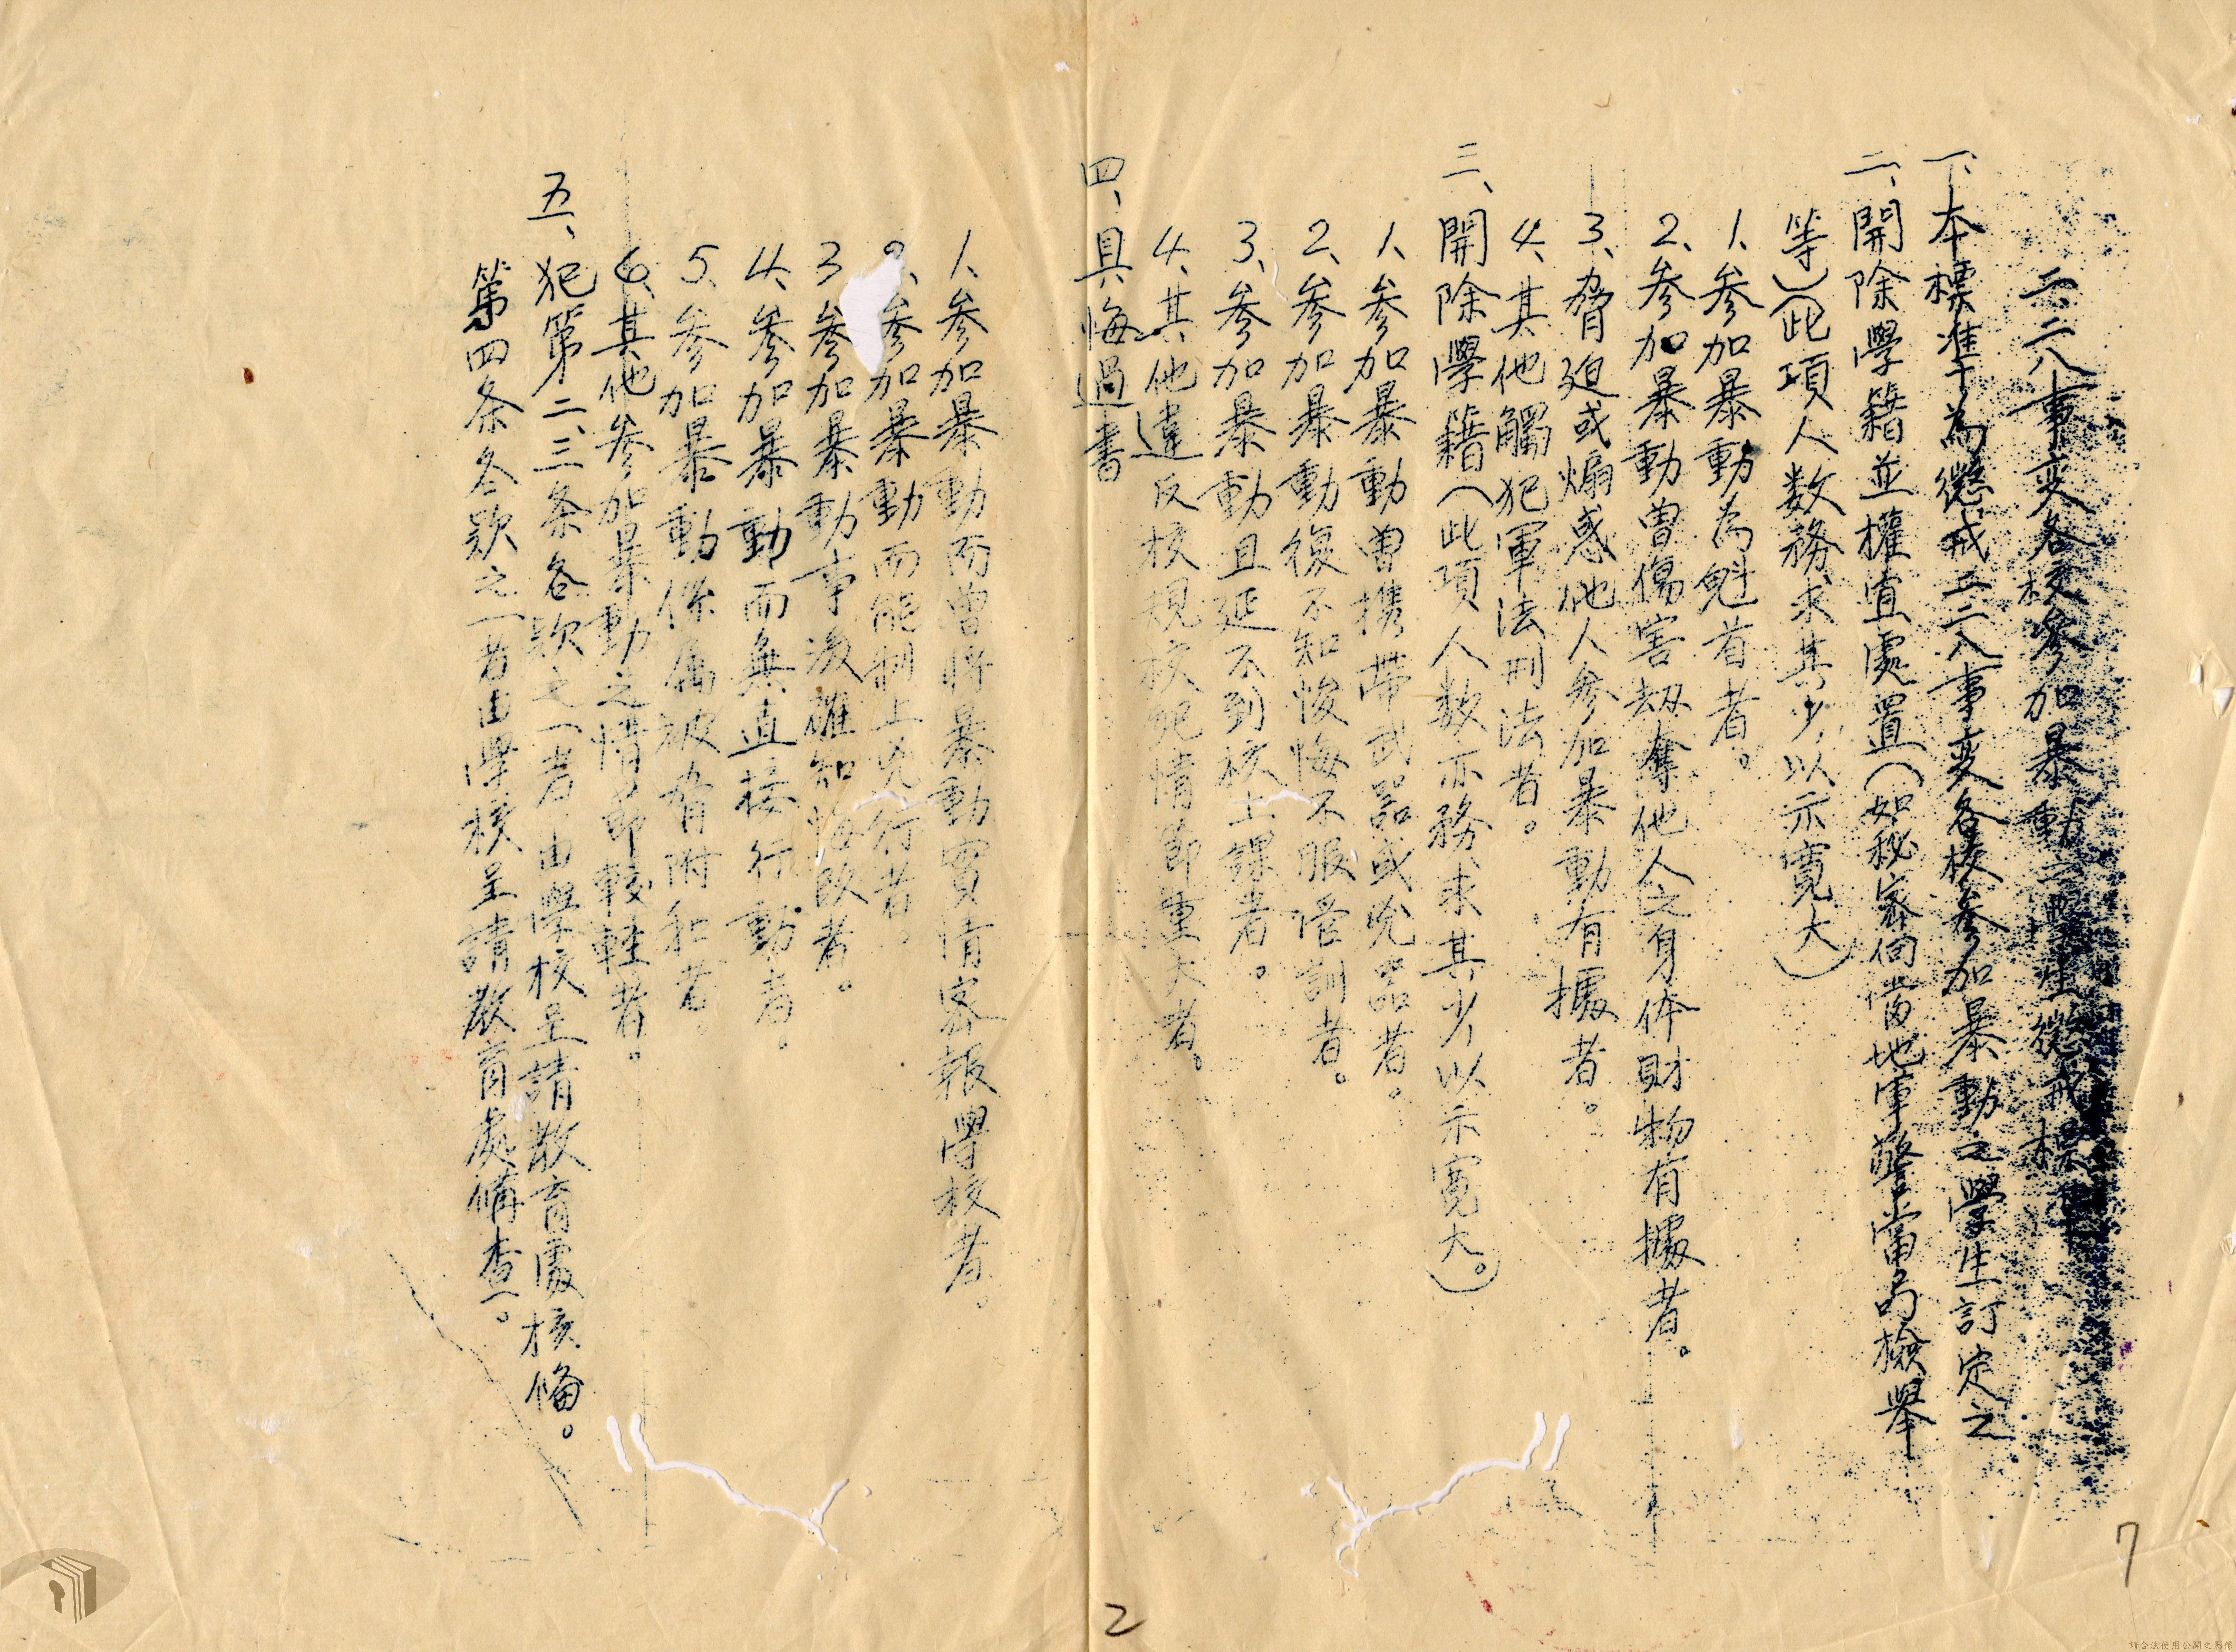 二二八事变各校參加暴動之學生懲戒標準
一、本標準為懲戒二二八事変各校參加暴動之學生訂定之
二、開除學籍並權宜處置（如秘密向當地軍警當局檢舉
等）（此項人数務求其少以示寬大）
1、參加暴動為魁首者。
2、參加暴動曾傷害劫奪他人之身体財物有據者。
3、脅迫或煽惑他人參加暴動有據者。
4、其他觸犯軍法刑法者。
三、開除學籍（此項人数亦務求其少以示寬大。）
1、參加暴動曾携帶武器或兇器者。
2、參加暴動後不知悛悔不服管訓者。
3、參加暴動且延不到校上課者。
4、其他違反校規校紀情節重大者。
四、具悔過書
1、參加暴動而曾將暴動實情密報學校者。
2、參加暴動而能制止兇行者。
3 參加暴動事後確知悔改者。
4、參加暴動而無直接行動者。
5、參加暴動係属被脅附和者。
6、其他參加暴動之情節較輕者。
五、犯第二、三条各款之一者由學校呈請教育處核備。
第四条各款之一者由學校呈請教育處備查。
2
7
請合法使用公開之影像